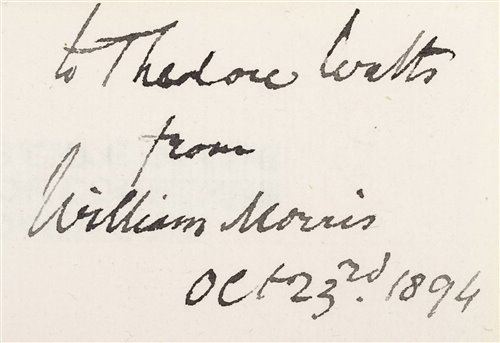 to Theodore Watts
from
William Morris
Oct 23rd. 1894